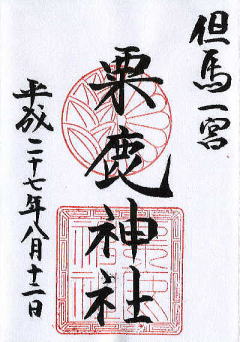 但馬一宮
粟鹿神社
平成二十七年八月十二日